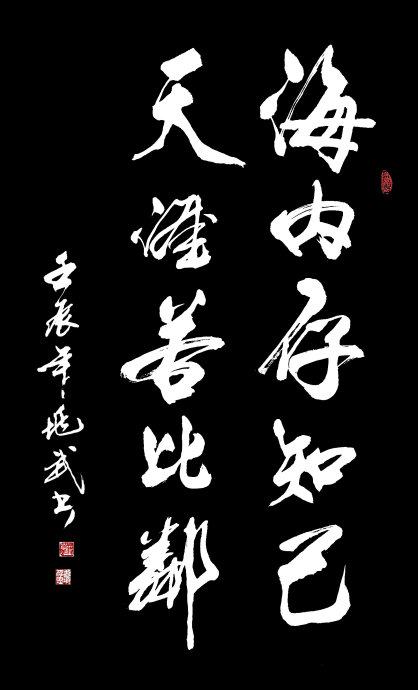 海内存知己
天涯若比鄰
壬辰年武书